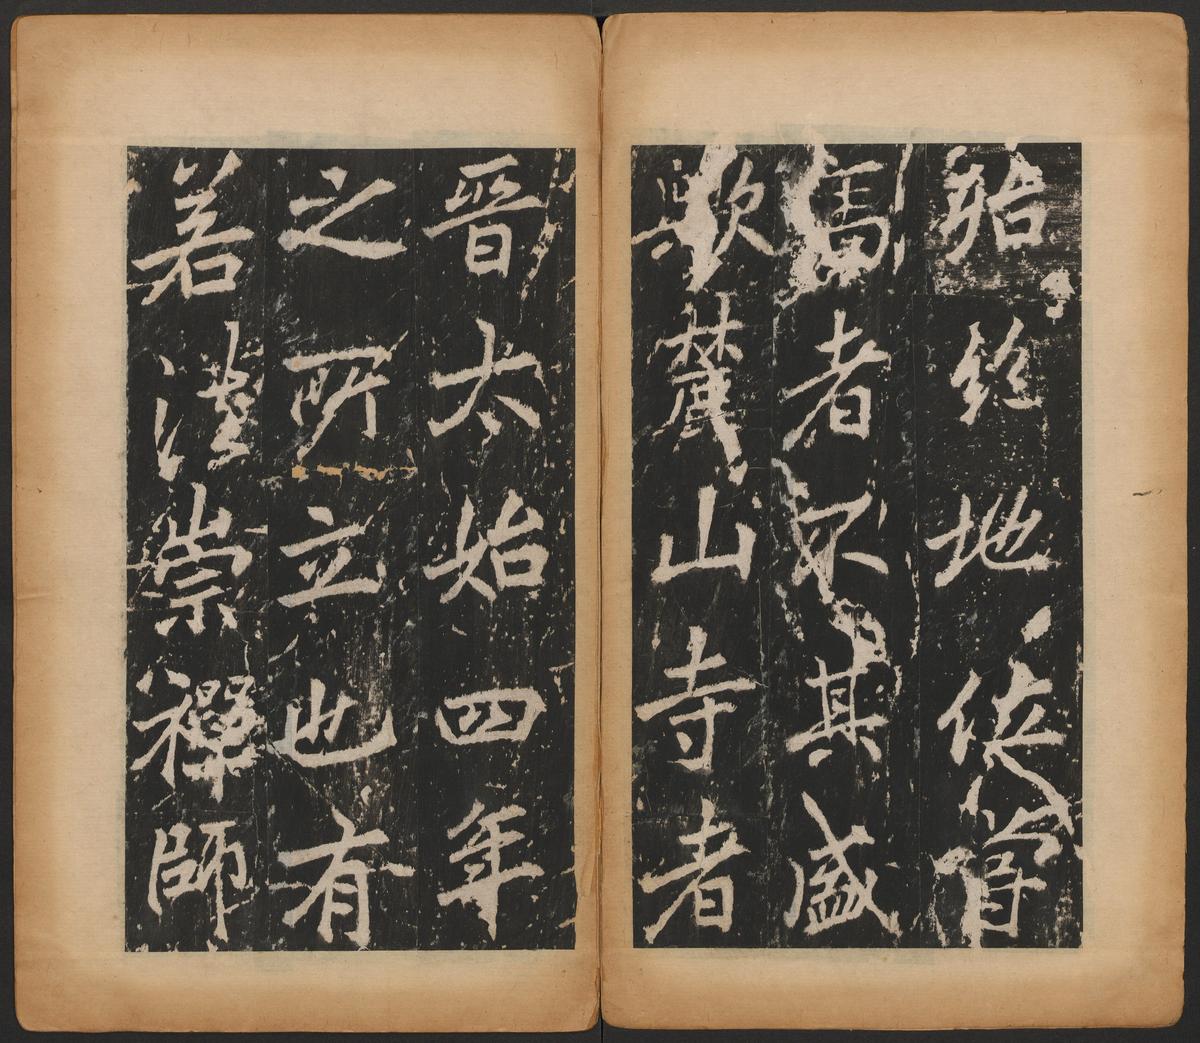 殆地
焉者不其盛
歟麓山寺者
晉太始四年
之所立也有
若法崇禪師